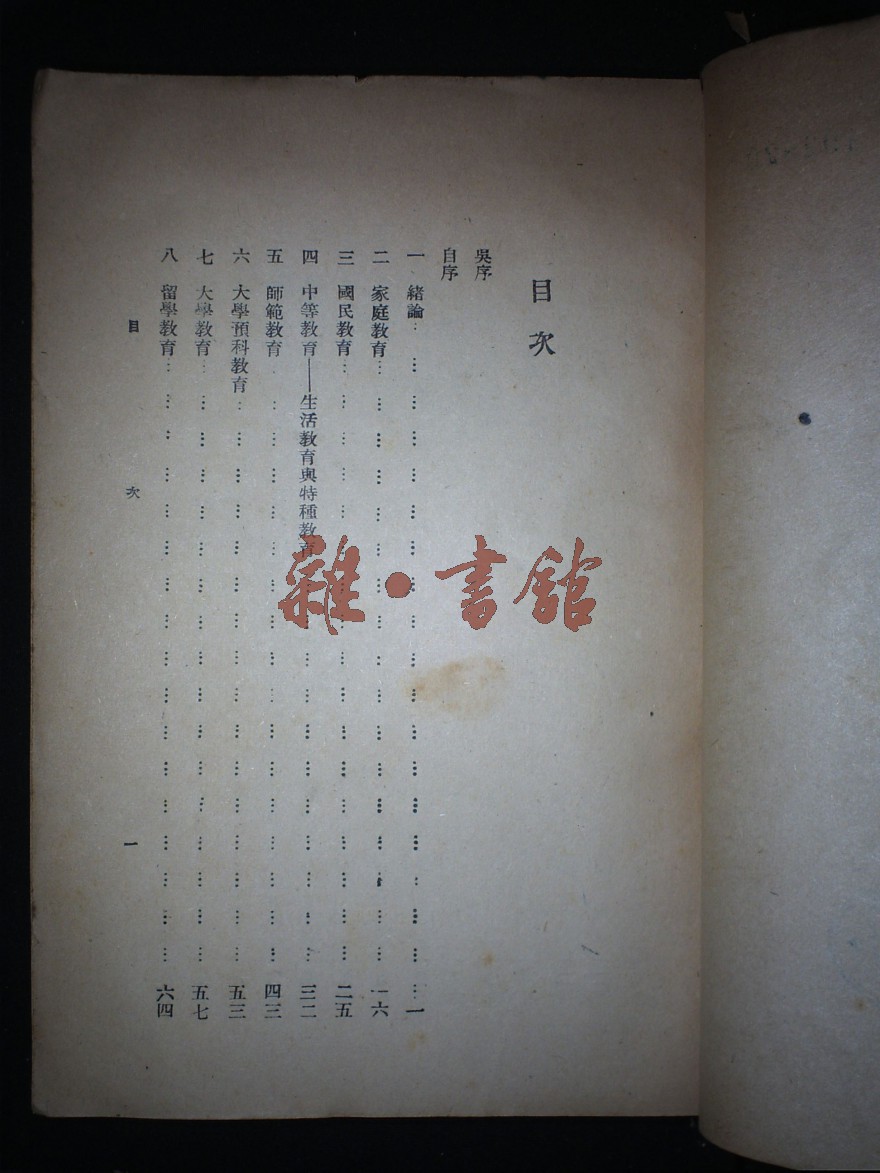 目次
吳序
自序
一 緒論⋯⋯⋯⋯⋯⋯⋯⋯⋯⋯⋯⋯⋯⋯一
二 家庭教育⋯⋯⋯⋯⋯⋯⋯⋯⋯⋯⋯⋯⋯一六
三 國民教育⋯⋯⋯⋯⋯⋯⋯⋯⋯⋯⋯⋯⋯二五
四 中等教育——生活教育與特種教育⋯⋯⋯⋯⋯⋯⋯⋯⋯⋯三二
五 師範教育⋯⋯⋯⋯⋯⋯⋯⋯⋯⋯⋯⋯⋯四三
六 大學預科教育⋯⋯⋯⋯⋯⋯⋯⋯⋯⋯⋯⋯五三
七 大學教育⋯⋯⋯⋯⋯⋯⋯⋯⋯⋯⋯⋯⋯五七
八 留學教育⋯⋯⋯⋯⋯⋯⋯⋯⋯⋯⋯⋯⋯六四
目次 一
雜·書館